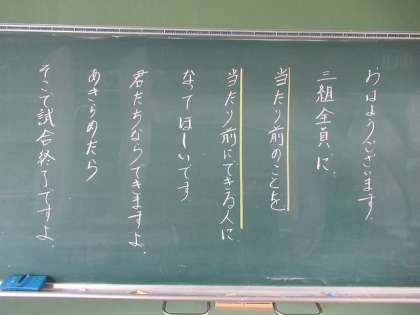 おはようございます。
三組全員に、
当たり前のことを
当たり前にできる人に
なってほしいです
君たちならできますよ。
あきらめたら
そこで試合終了ですよ。